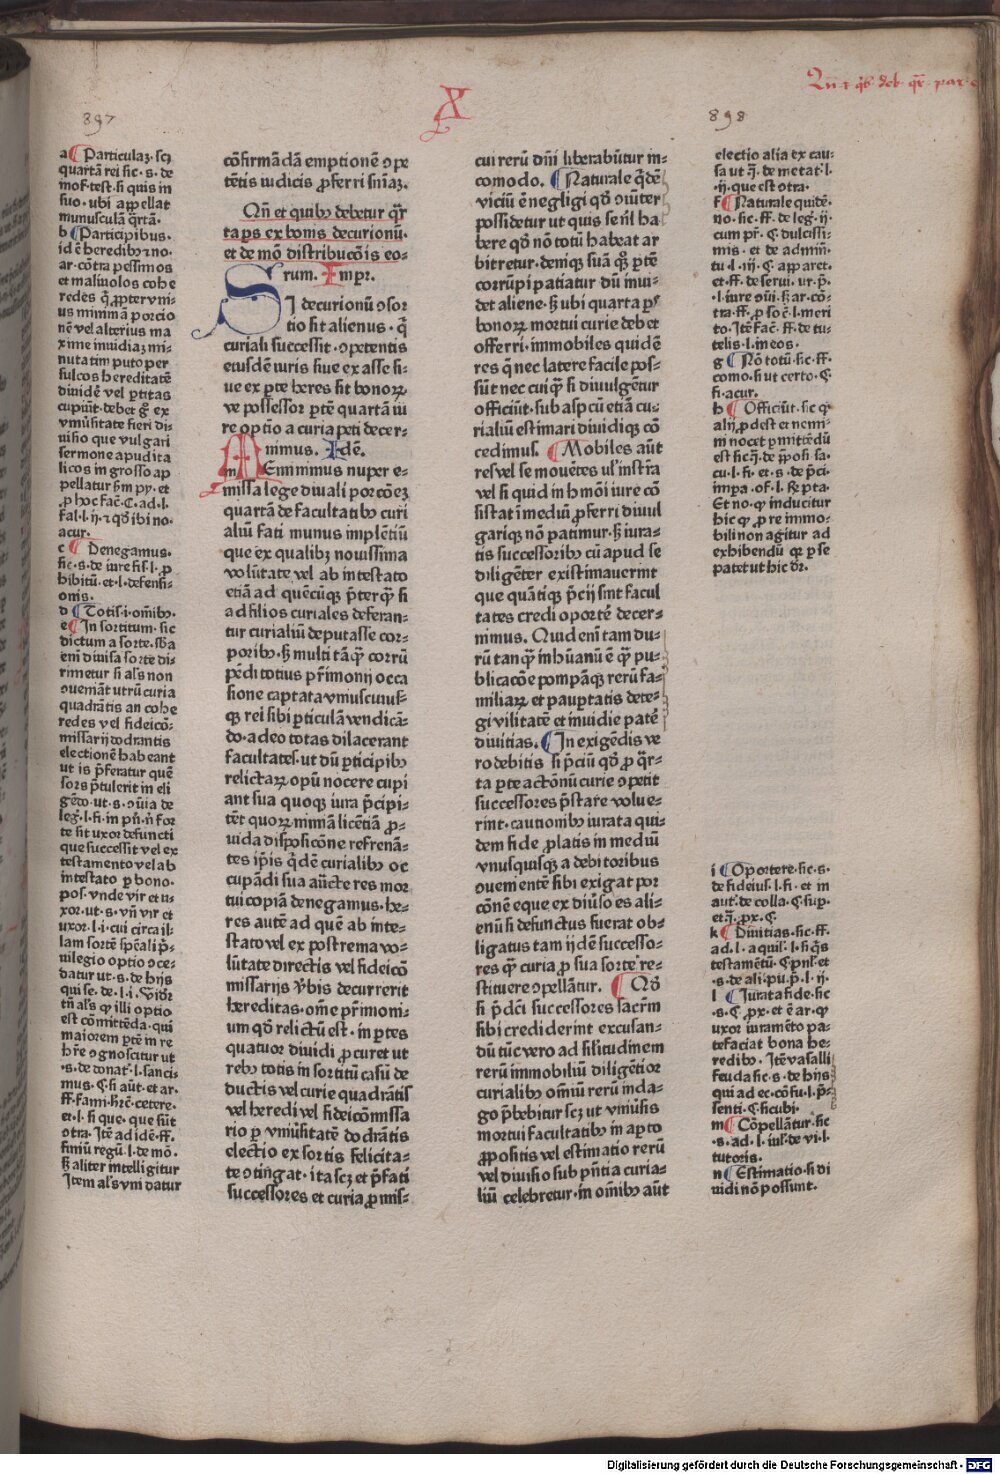 897
X
898
Qñ ⁊ qͥb᷒ deb. qͣr. pars e
a ¶ Particulaꝫ. scꝫ
quartā rei sic. s. de
mof. test. si quis in
suo. ubi appellat
munusculū q̄rtā.
b ¶ Participibus.
id ē heredibꝫ ⁊ no.
ar. cōtra pessimos
et maliuolos cohe
redes q̄ ꝓpter vni-
us minimā porcio
nē vel alterius ma
xime inuidiaꝫ mi-
nutatim puto per
sulcos hereditatē
diuidē vel ꝑtitas
cupiūt. debet gͦ ex
vniūsitate fieri di-
uisio que vulgari
sermone apud ita
licos in grosso ap
pellatur ẜm py. et
ꝓ hoc fac̄. C. ad. l.
fal. l. ij. ⁊ qð ibi no.
acur.
c ¶ Denegamus.
sic. s. de iure fis. l. ꝓ
hibitū. et. l. defensi-
onis.
d ¶ Totis. i. oībꝫ.
e ¶ In sortitum. sic
dictum a sorte. sʒa
enī diuisa sorte di-
rimetur si als̄ non
ꝯueniāt utrū curia
quadrātis an cohe
redes vel fideicō-
missarij dodrantis
electionē habeant
ut is p̄feratur quē
sors p̄tulerit in eli
gēdo. ut. s. ꝯūia de
leg. l. fi. in pn̄. n̄ for
te sit uxor defuncti
que successit vel ex
testamento vel ab
intestato ꝑ bono.
pos. vnde vir et u-
xor. ut. s. vn̄ vir et
uxor. l. i. cui circa il-
lam sortē spēali p̄-
uilegio optio ꝯce-
datur ut. s. de hijs
qui se. de. l. i. Vid'r
tn̄ als̄ qͥ illi optio
est cōmittēda. qui
maiorem ꝑtē in re
hr̄e ꝯgnoscitur ut
.s. de donat. l. sanci-
mus. C. si aūt. et ar.
ff. fami. h̄rc̄. cetere.
et. l. si que. que sūt
ꝯtra. Itē ad idē. ff.
finiū regū. l. de mō.
sꝫ aliter intelligitur
Item als̄ vni datur
cōfirmādā emptionē ꝯpe
tētis iudicis ꝓferri sn̄iaꝫ.
Qn̄ et quibꝫ debetur q̄r
ta ps ex bonis decurionū.
et de mō distribucōis eo-
rum. Impr.
SI decurionū ꝯsor
tio sit alienus. q̄
curiali successit. ꝯpetentis
eiusdē iuris siue ex asse si-
ue ex ꝑte heres sit bonoꝝ
ve possessor ꝑtē quartā iu
re optio a curia peti decer-
nimus. Idē.
MEminimus nuper e-
missa lege diuali porcōeꝫ
quartā de facultatibꝫ curi
aliū fati munus implētiū
que ex qualibꝫ nouissima
volūtate vel ab intestato
etiā ad quēcūqꝫ p̄terqͣꝫ si
ad filios curiales deferan-
tur curialiū deputasse cor-
poribꝫ. sꝫ multi tāqͣꝫ corrū
pēdi totius pr̄imonij occa
sione captata vniuscuius-
qꝫ rei sibi ꝑticulā vendicā-
do. adeo totas dilacerant
facultates. ut dū ꝑticipibꝫ
relictaꝝ opū nocere cupi
ant sua quoqꝫ iura p̄cipi-
tēt quoꝝ nimiā licētiā ꝓ-
uida disposicōne refrenā-
tes ip̄is q̄dē curialibꝫ oc
cupādi sua aūcte res mor
tui copiā denegamus. he-
res autē ad quē ab inte-
stato vel ex postrema vo-
lūtate directis vel fideicō
missarijs v̄bis decurrerit
hereditas. om̄e pr̄imoni-
um qð relictū est. in ꝑtes
quatuor diuidi ꝓcuret ut
rebꝫ totis in sortitū casū de
ductis vel curie quadrātis
vel heredi vel fideicōmissa
rio ꝑ vniūsitatē dodrātis
electio ex sortis felicita-
te ꝯtingat. ita scꝫ et p̄fati
successores et curia ꝓmis-
cui rerū dn̄i liberabūtur in-
comodo. ¶ Naturale q̄dē
viciū ē negligi qð ꝯiūiter
possidetur ut quis se nl̄ ha
bere qð nō totū habeat ar
bitretur. deniqꝫ suā qͣꝫ ꝑtē
corrūpi patiatur dū inui-
det aliene. sꝫ ubi quarta ps
bonoꝝ mortui curie debet
offerri. immobiles quidē
res q̄ nec latere facile pos-
sūt nec cuiqͣꝫ si diuulgētur
officiūt. sub aspectu etiā cu-
rialiū estimari diuidiqꝫ cō
cedimus. ¶ Mobiles aūt
res vel se mouētes vl' inst̄ra
vel si quid in hmōi iure cō
sistat ī mediū ꝓferri diuul
gariqꝫ nō patimur. sꝫ iura-
tis successoribꝫ cū apud se
diligēter existimauerint
que quātiqꝫ p̄cij sint facul
tates credi oportē decer-
nimus. Quid enī tam du-
rū tanqͣꝫ inhūanū ē qͣꝫ pu-
blicacōe pompāqꝫ rerū fa-
miliaꝝ et pauꝑtatis dete-
gi vilitatē et inuidie patē
diuitias. ¶ In exigēdis ve
ro debitis si p̄ciū qð ꝓ q̄r-
ta ꝑte actōnū curie ꝯpetit
successores p̄stare volue-
rint. cautionibꝫ iurata qui-
dem fide ꝓlatis in mediū
vnusquisqꝫ a debitoribus
ꝯuementē sibi exigat por
cōnē eque ex diūso es ali-
enū si defunctus fuerat ob-
ligatus tam ijdē successo-
res qͣꝫ curia ꝓ sua sorte re-
stituere ꝯpellātur. ¶ Qð
si p̄dci successores sacrm̄
sibi crediderint excusan-
dū tūc vero ad silitudinem
rerū immobiliū diligētior
curialibꝫ omniū rerū inda-
go p̄bebitur scꝫ ut vniūsis
mortui facultatibꝫ in apto
ꝓpositis vel estimatio rerū
vel diuisio sub pn̄tia curia-
liū celebretur. in om̄ibꝫ aūt
electio alia ex cau-
sa ut q̄. de metat. l.
.ij. que est ꝯtra.
f ¶ Naturale quidē.
no. sic. ff. de leg. ij.
cum pr̄. C. dulcissi-
mis. et de admī.
tu. l. iij. C. apparet.
et. ff. de serui. ur. p̄.
.l. iure ꝯūi. sꝫ ar. cō-
tra. ff. ꝓ so c̄. l. meri
to. Itē fac̄. ff. de tu-
telis. l. in eos.
g ¶ Nō totū. sic. ff.
como. si ut certo. C
si. acur.
h ¶ Officiūt. sic qͥ
alij ꝓdest et nemi-
ni nocet ꝑmittēdū
est sic q̄. de p̄posi. sa-
cu. l. fi. et. s. de p̄ci.
impa. of. l. R̄pta.
Et no. qͥ inducitur
hic qͥ ꝓ re immo-
bili non agitur ad
exhibendū qꝛ ꝑ se
patet ut hic dr̄.
i ¶ Oportere. sic. s.
de fideius. l. fi. et in
aut. de colla. C. sup.
et q̄. ꝓx. C.
k ¶ Diuitias. sic. ff.
ad. l. aquil. l. si q̄s
testamētū. C. pn̄l. et
.s. de ali. pu. p̄. l. ij.
l ¶ Iurata fide. sic
.s. C. ꝓx. et ē ar. qͥ
uxor iuramēto pa-
tefaciat bona he-
redibꝫ. Itē vasalli
feuda sic. s. de hijs
qui ad ec. cōfu. l. p̄-
senti. C. sicubi.
m ¶ Cōpellātur. sic
.s. ad. l. iul. de vi. l.
tutoris.
n ¶ Estimatio. si di
uidi nō possunt.
Digitalisierung gefördert durch die Deutsche Forschungsgemeinschaft - DFG